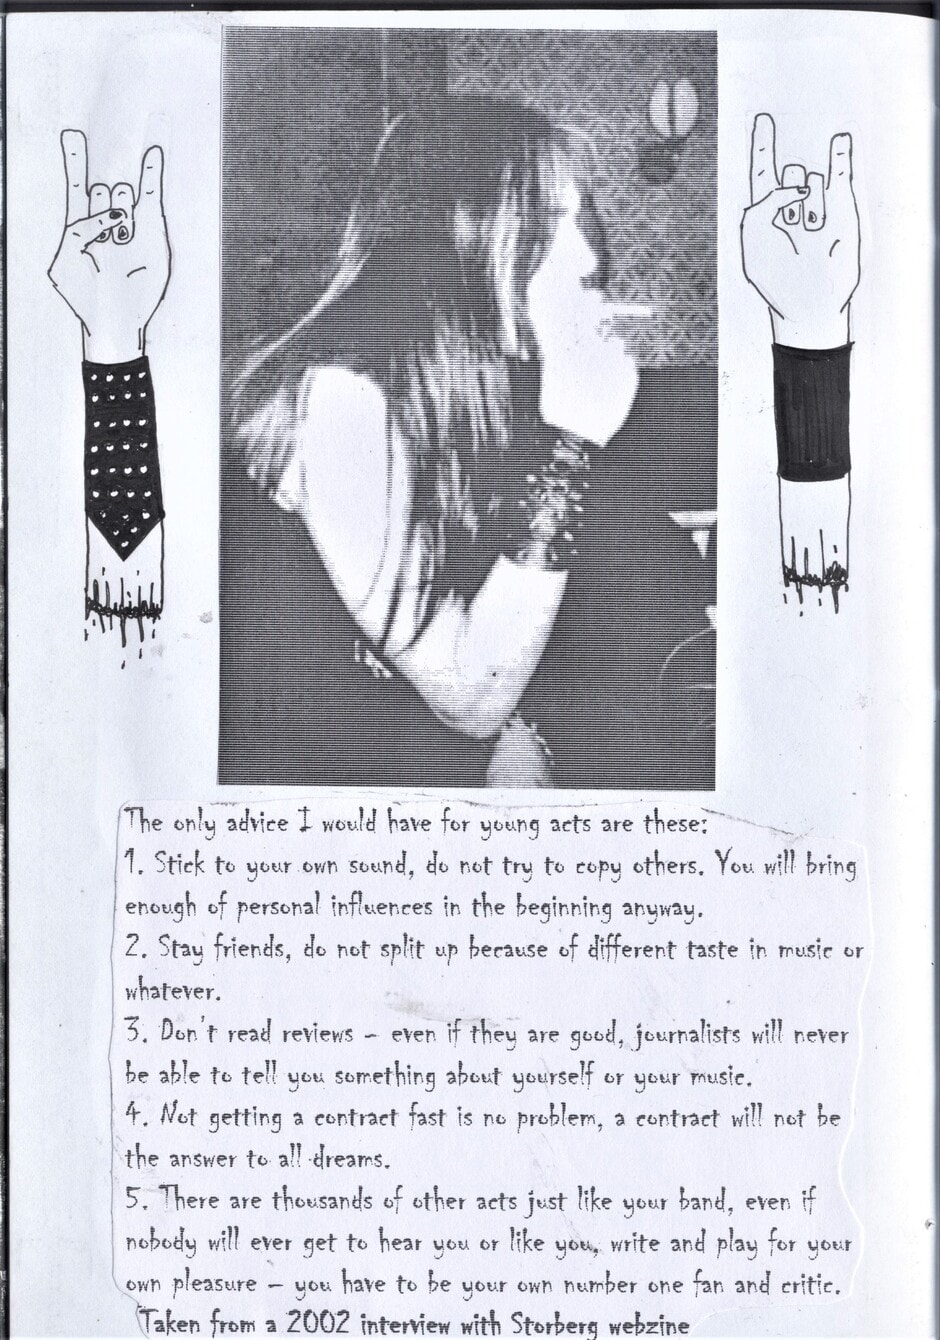 The only advice I would have for young acts are these:
1. Stick to your own sound, do not try to copy others. You will bring
enough of personal influences in the beginning anyway.
2. Stay friends, do not split up because of different taste in music or
whatever.
3. Don't read reviews – even if they are good, journalists will never
be able to tell you something about yourself or your music.
4. Not getting a contract fast is no problem, a contract will not be
the answer to all dreams.
5. There are thousands of other acts just like your band, even if
nobody will ever get to hear you or like you, write and play for your
own pleasure – you have to be your own number one fan and critic.
Taken from a 2002 interview with Storberg webzine